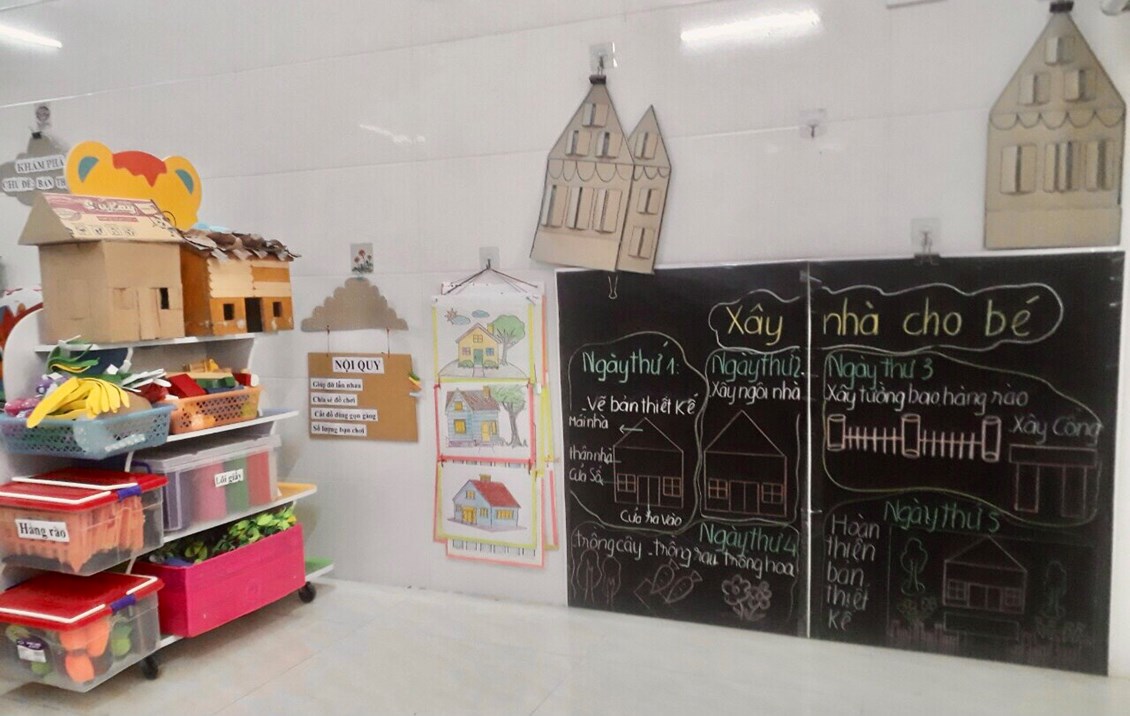 KHÁM PHÁ
CHỦ ĐỀ: BẢN TH
NỘI QUY
Giúp đỡ lẫn nhau
Chia sẻ đồ chơi
Cất đồ dùng gọn gàng
Số lượng bạn chơi
Hàng rào
Lõi giấy
Xây nhà cho bé
Ngày thứ 1:
Vẽ bản thiết kế
Mái nhà
thân nhà
Cửa Sổ
Cửa ra vào
Ngày thứ 2
Xây ngôi nhà
Ngày thứ 3
Xây tường bao hàng rào
Xây Cổng
Ngày thứ 4
trồng cây - trồng rau trồng hoa
Ngày thứ 5
Hoàn
thiện
bản
thiết
kế